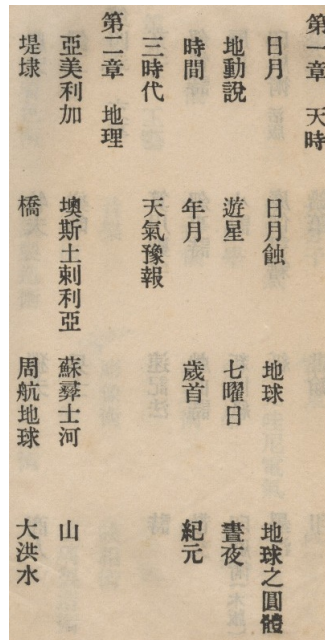 第一章 天時
日月 日月蝕 地球 地球之圓體
地動說 遊星 七曜日 晝夜
時間 年月 歲首 紀元
三時代 天氣豫報
第二章 地理
亞美利加 墺斯土剌利亞 蘇彛士河 山
堤埭 橋 周航地球 大洪水